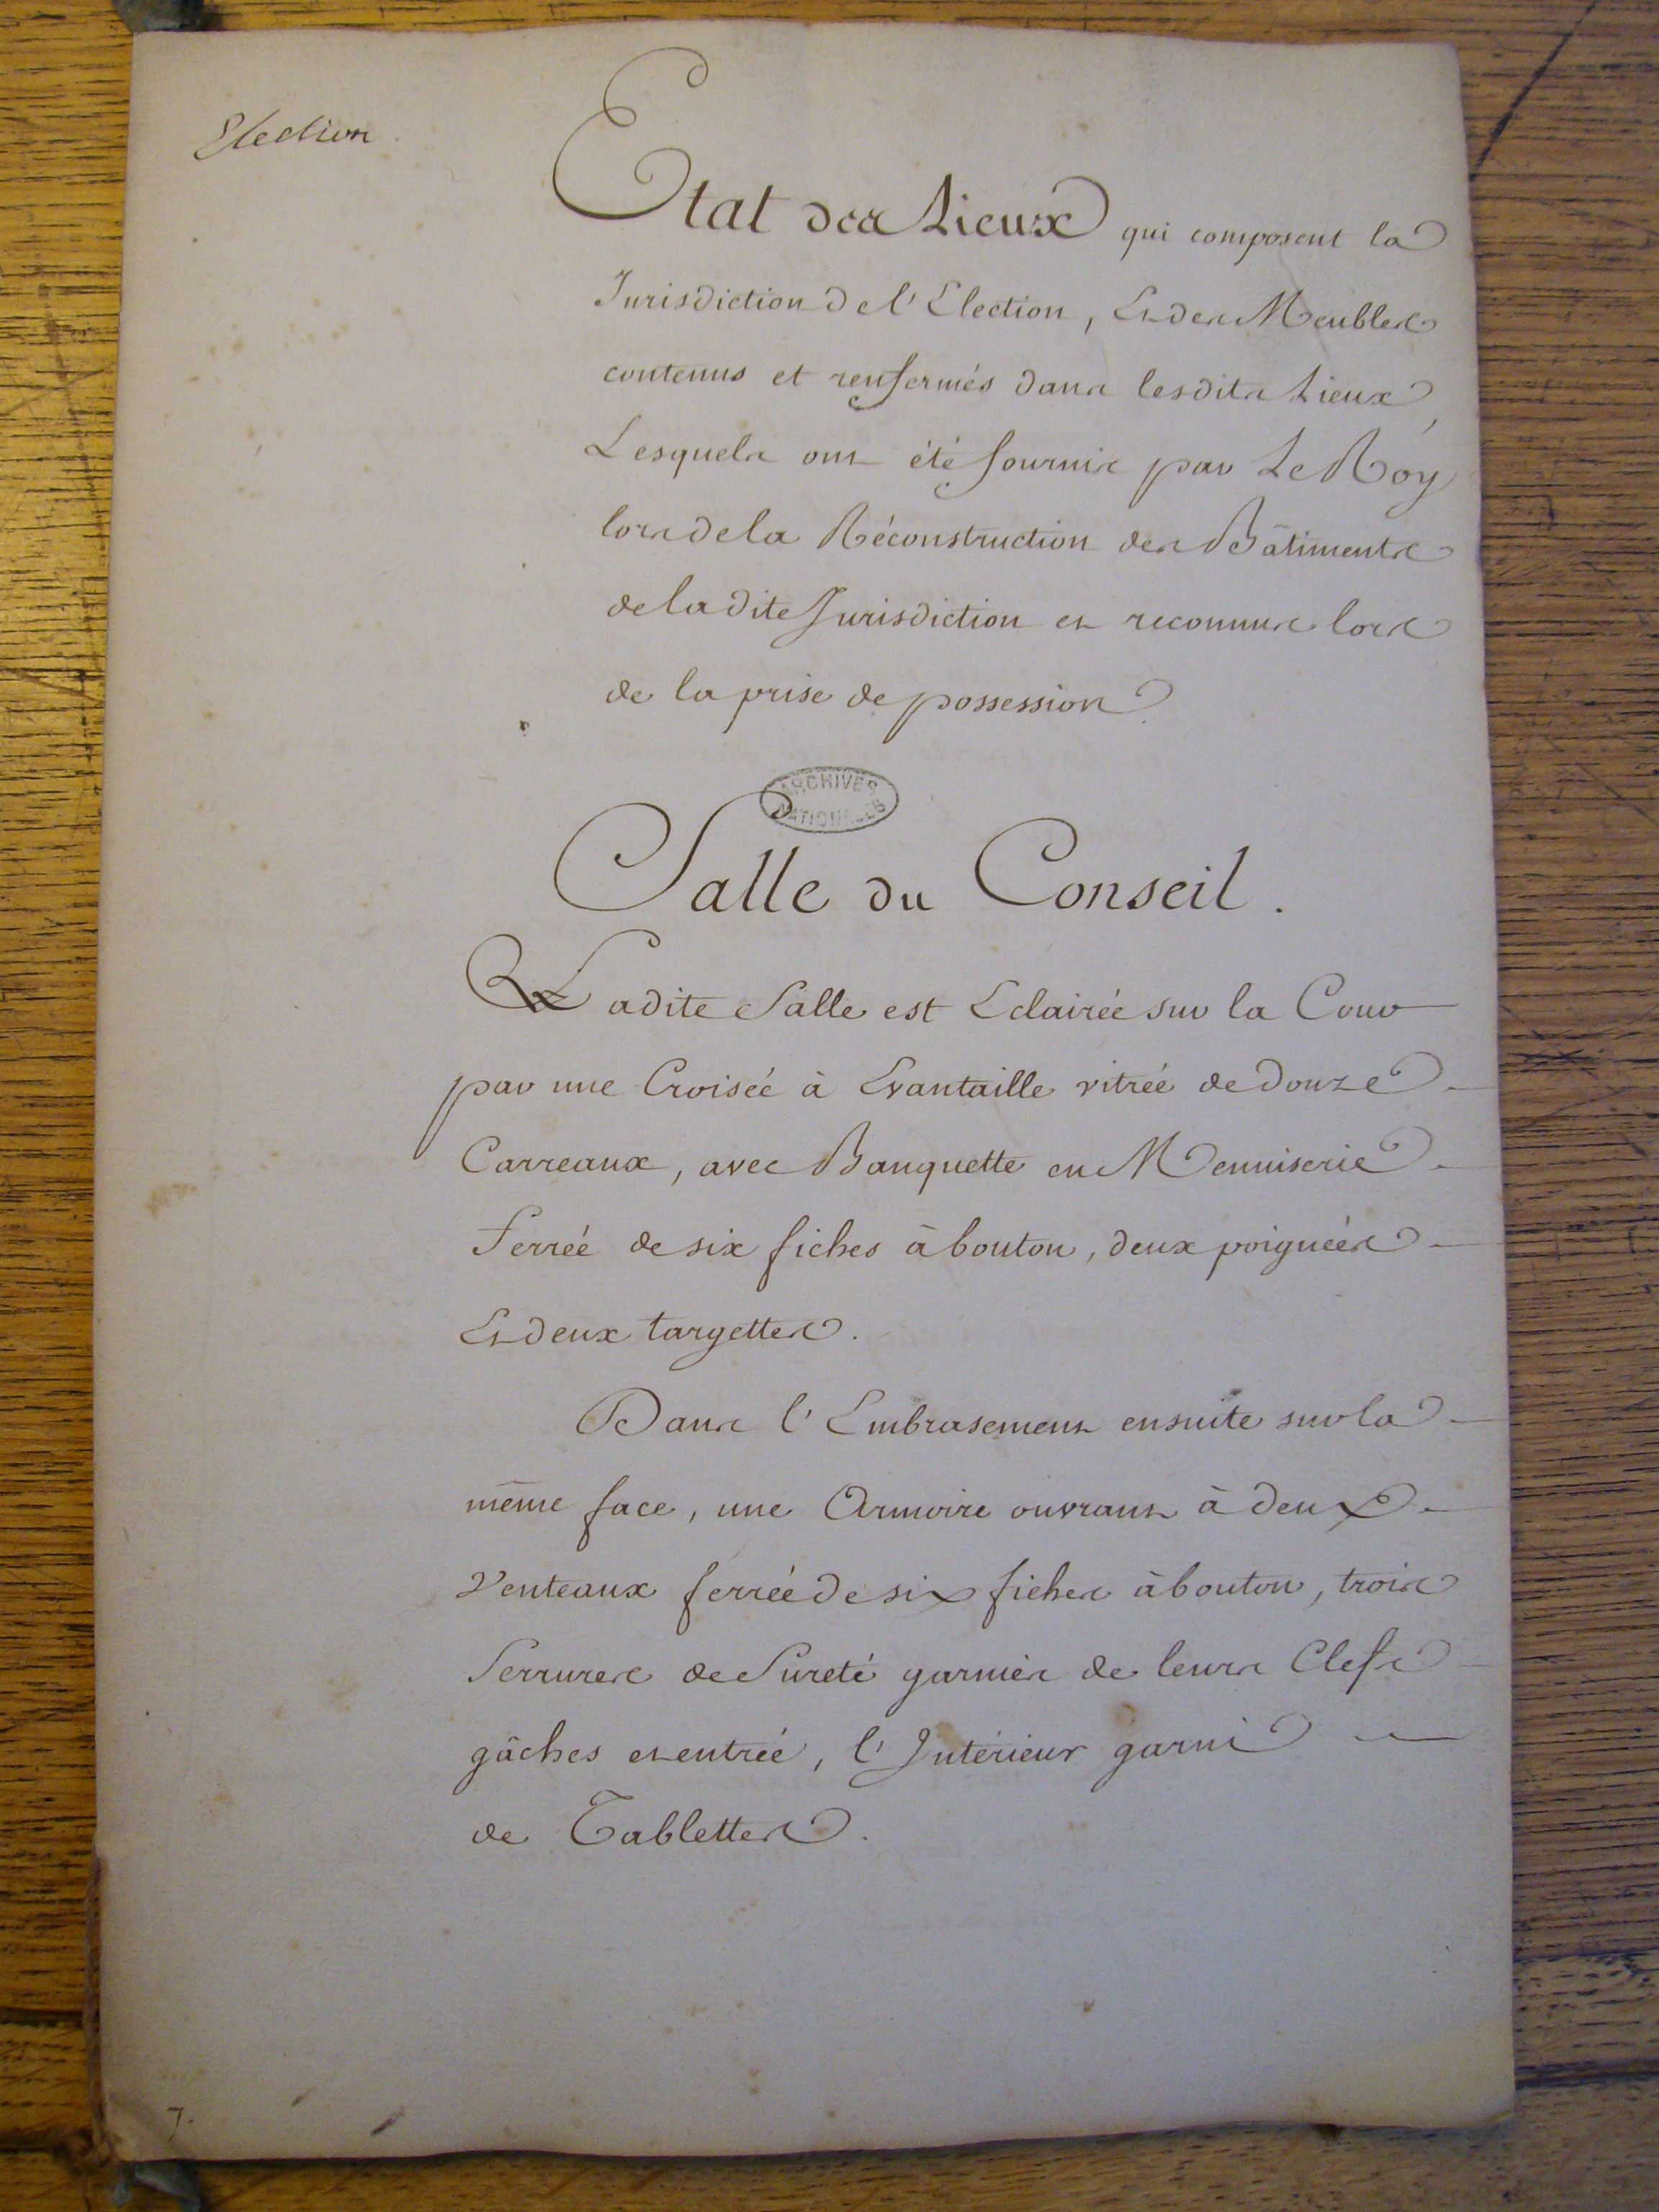 Election
Etat des Lieux qui composent la
Jurisdiction de l'Election, Et des Meubles
contenus et renfermés dans lesdits Lieux,
Lesquels ont été fournis par Le Roy
lors de la Réconstruction des Bâtiments
de la dite Jurisdiction et reconnus lors
de la prise de possession
ARCHIVES
NATIONALES
Salle du Conseil.
Ladite Salle est Eclairée sur la Cour
par une Croisée à Evantaille vitrée de douze
Carreaux, avec Banquette en Menuiserie
ferrée de six fiches à bouton, deux poignées
Et deux targettes.
Dans l'Embrasement ensuite sur la
même face, une Armoire ouvrant à deux
Venteaux ferrée de six fiches à bouton, trois
Serrures de Sureté garnies de leurs Clefs
gâches et entrée, l'Intérieur garni
de Tablettes.
7.